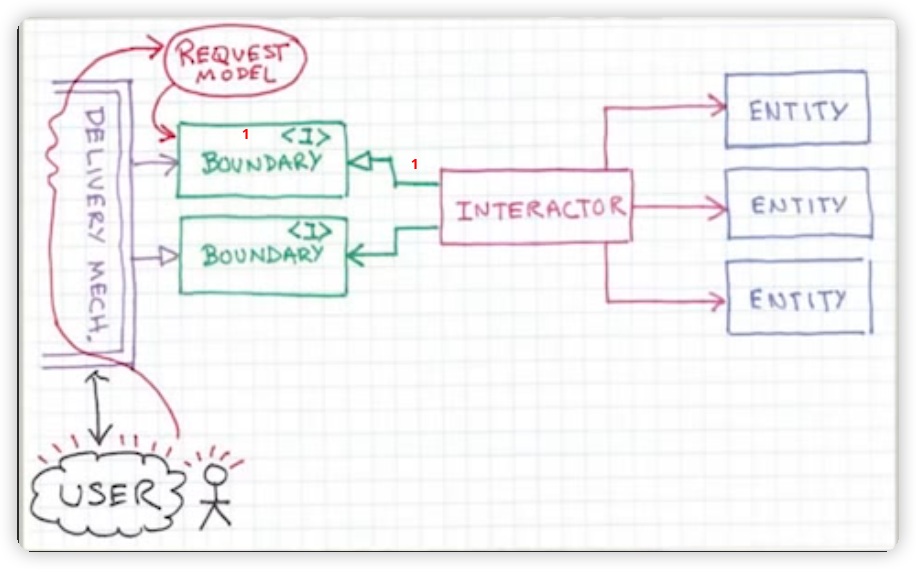 REQUEST
MODEL
DELIVERY MECH.
1
<I>
BOUNDARY
1
<I>
BOUNDARY
INTERACTOR
ENTITY
ENTITY
ENTITY
USER